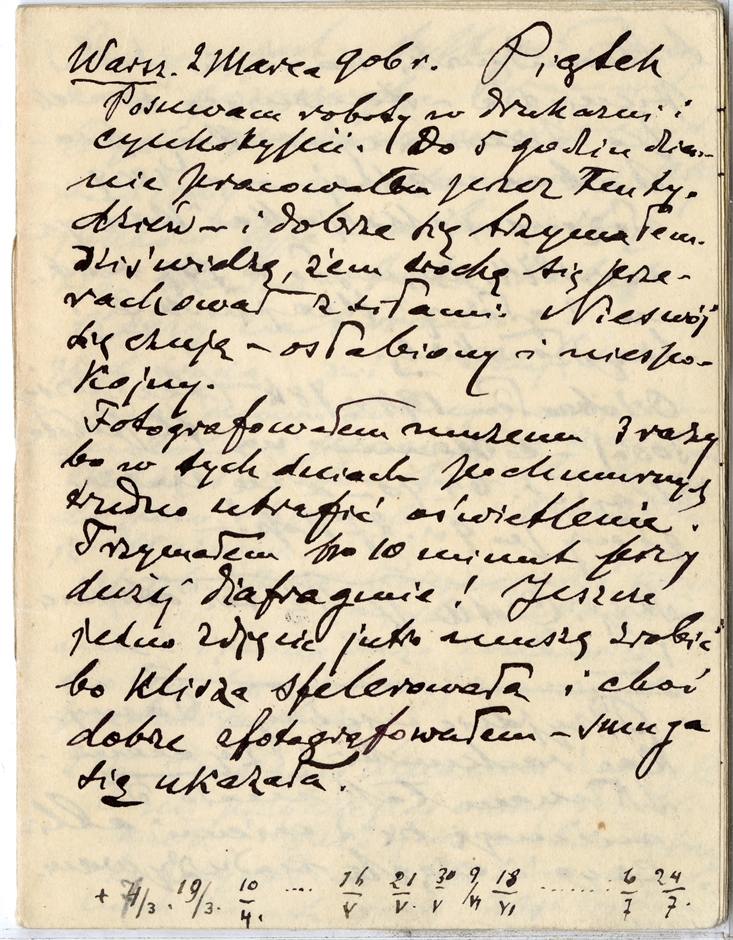 Warsz. 2 Marca 906 r. Piątek
Posuwam roboty w drukarni i
cynkotypii. Do 5 godzin dzien-
nie pracowałem przez ten ty-
dzień – i dobrze się trzymałem.
Dziś widzę, żem trochę się prze-
rachował z siłami. Nieswój
się czuję – osłabiony i niespo-
kojny.
Fotografowałem muzeum 3 razy
bo w tych dniach pochmurnych
trudno utrafić oświetlenie.
Trzymałem po 10 minut przy
dużej diafragmie! Jeszcze
jedno zdjęcie jutro muszę zrobić
bo klisza szelerowała i choć
dobrze sfotografowałem – smuga
się ukazała.
+ /3. 19/3. 10/4. .... 16/V 21/V. 30/V 9/VI 18/VI ........ 6/7 24/7.